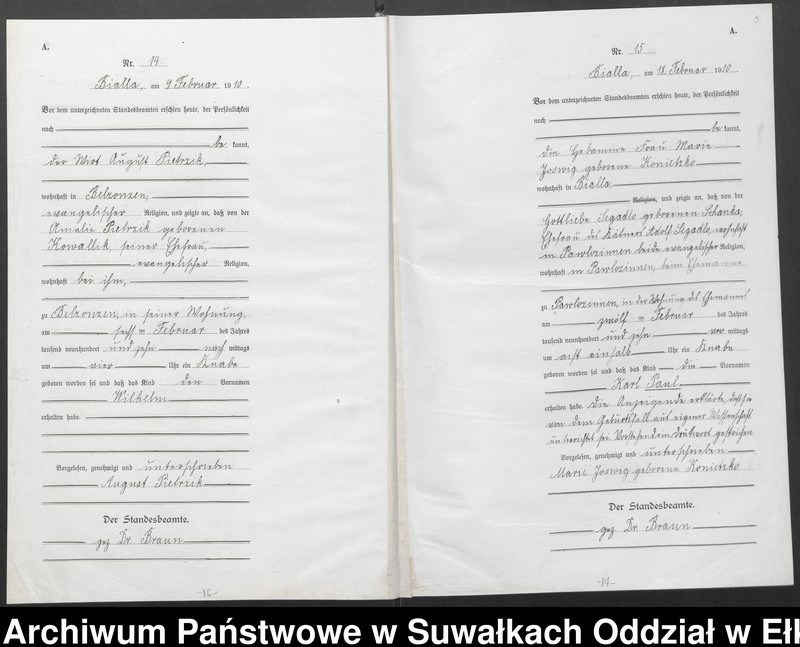 A.
Nr. 14
Bialla, am 9 Februar 1910.
Vor dem unterzeichneten Standesbeamten erschien heute, der Persönlichkeit
nach
be kannt,
der Wirt August Pietrzik,
wohnhaft in Belzonzen,
evangelischer Religion, und zeigte an, daß von der
Amalie Pietrzik geborenen
Kowallik, seiner Ehefrau,
evangelischer Religion,
wohnhaft bei ihm,
zu Belzonzen, in seiner Wohnung,
am sechs ten Februar des Jahres
tausend neunhundert und zehn nach mittags
um vier Uhr ein Knabe
geboren worden sei und daß das Kind den Vornamen
Wilhelm
erhalten habe.
Vorgelesen, genehmigt und unterschrieben
August Pietrzik
Der Standesbeamte.
gez Dr. Braun
-16-
9
A.
Nr. 15
Bialla, am 18. Februar 1910.
Vor dem unterzeichneten Standesbeamten erschien heute, der Persönlichkeit
nach
be kannt,
die Hebamme Frau Marie
Joswig geborene Konietzko
wohnhaft in Bialla,
Religion, und zeigte an, daß von der
Gottliebe Segadlo geborenen Schanka,
Ehefrau des Kätners Adolf Segadlo, wohnhaft
in Pawlozinnen beide evangelischer Religion,
wohnhaft in Pawlozinnen, beim Ehemanne
zu Pawlozinnen, in der Wohnung des Ehemannes
am zwölf ten Februar des Jahres
tausend neunhundert und zehn vor mittags
um acht einhalb Uhr ein Knabe
geboren worden sei und daß das Kind die Vornamen
Karl Paul.
erhalten habe. Die Anzeigende erklärte, daß sie
von dem Geburtsfall aus eigener Wissenschaft
unterrichtet sei. Vorstehend ein Druckwort gestrichen
Vorgelesen, genehmigt und unterschrieben
Marie Joswig geborene Konietzko
Der Standesbeamte.
gez. Dr. Braun
-17-
Archiwum Państwowe w Suwałkach Oddział w Ełk